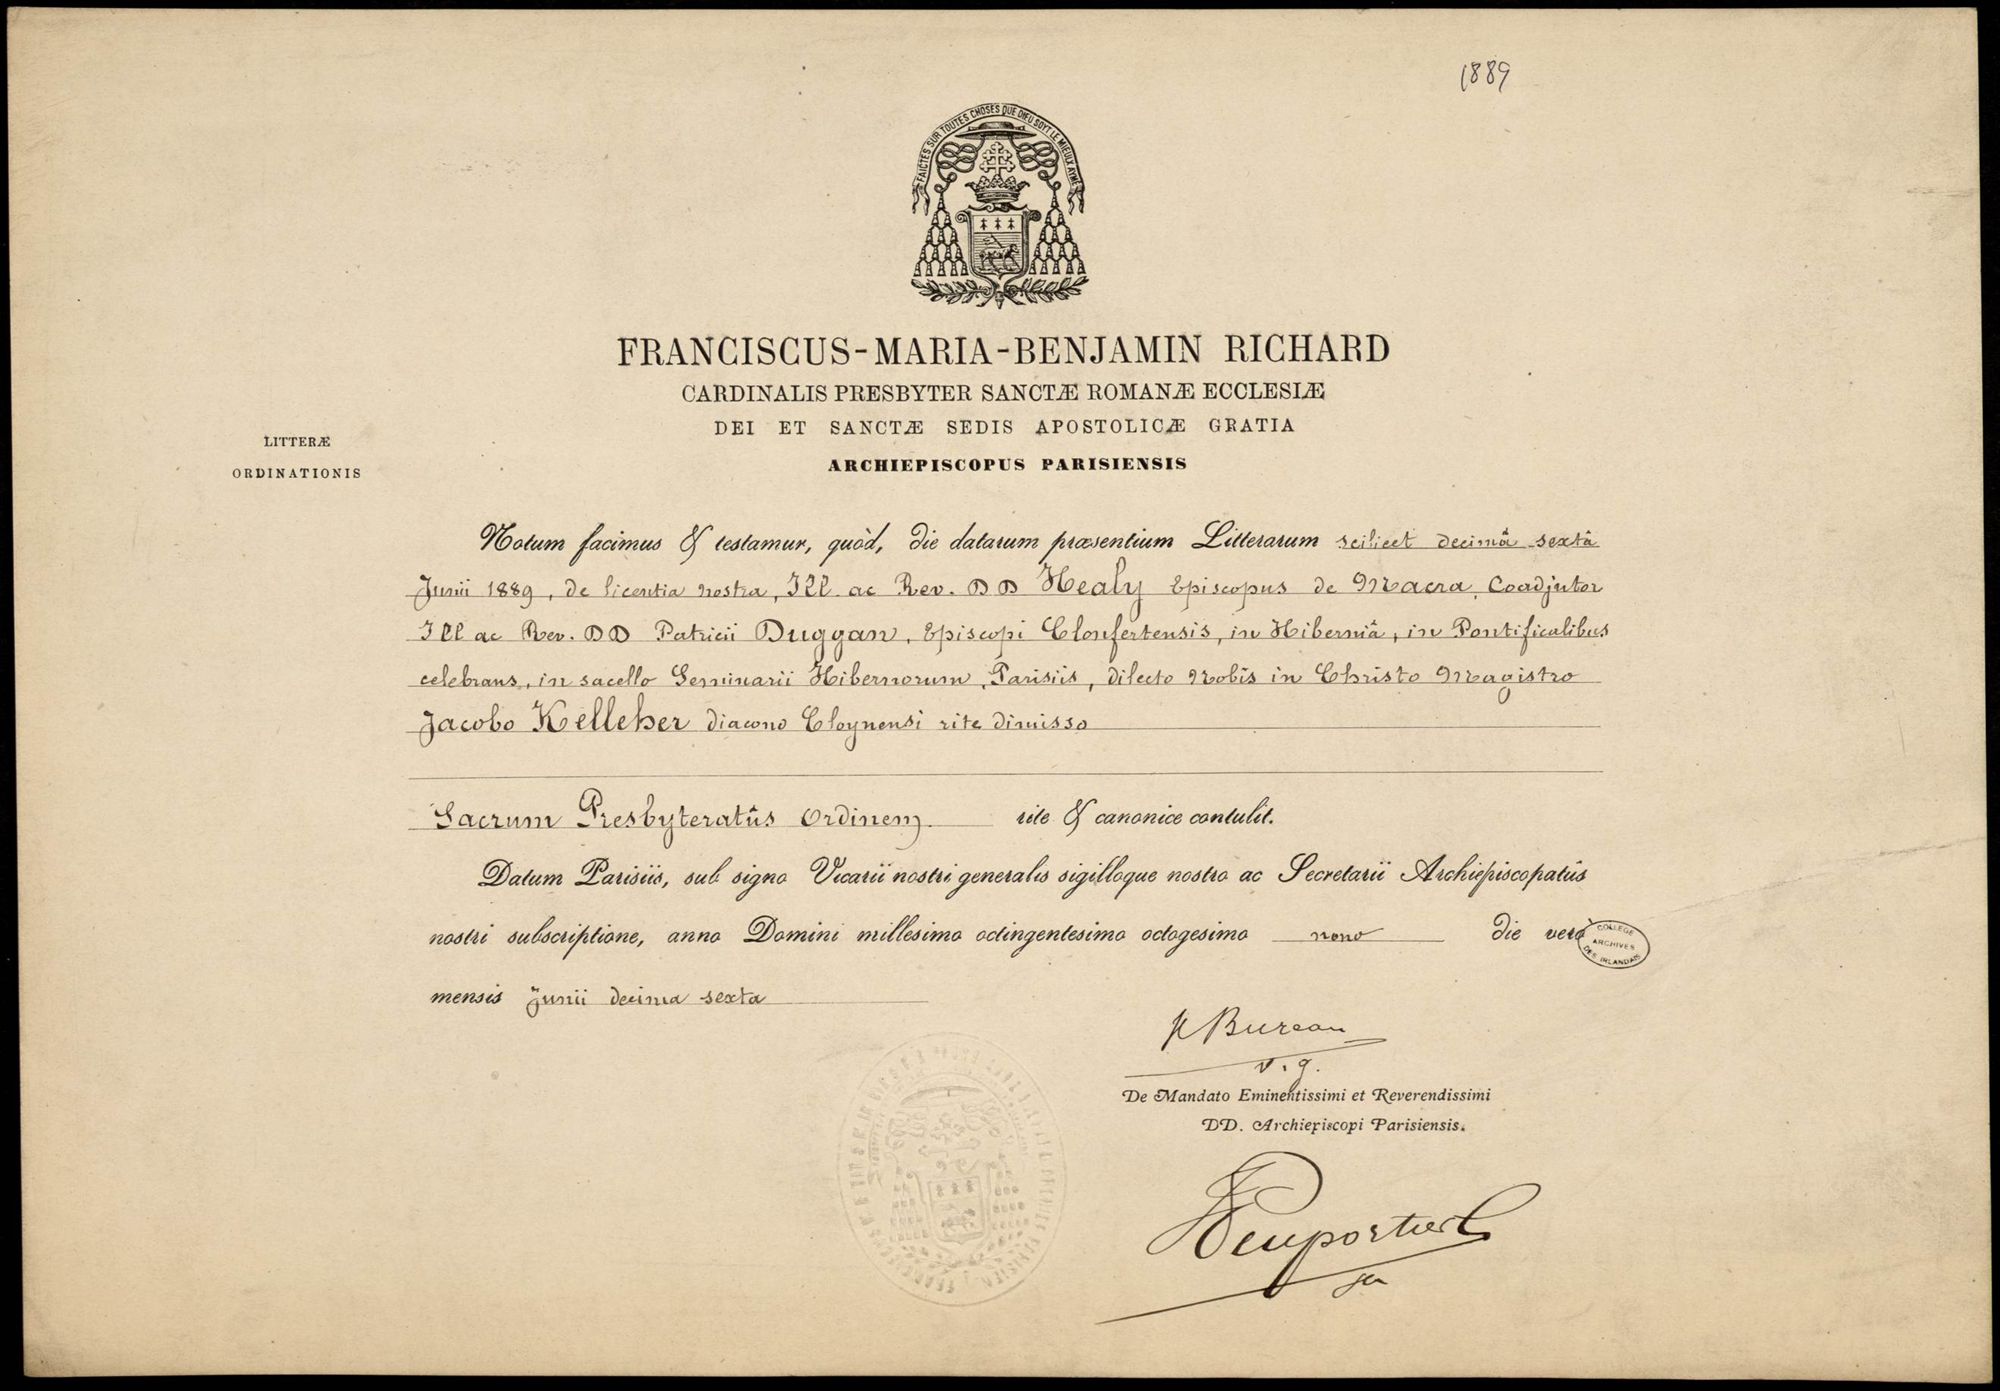 1889
FAICTES SUR TOUTES CHOSES QUE DIEU SOYT LE MIEULX AYMÉ
FRANCISCUS-MARIA-BENJAMIN RICHARD
CARDINALIS PRESBYTER SANCTÆ ROMANÆ ECCLESIÆ
DEI ET SANCTÆ SEDIS APOSTOLICÆ GRATIA
ARCHIEPISCOPUS PARISIENSIS
LITTERÆ
ORDINATIONIS
Notum facimus & testamur, quòd, die datarum præsentium Litterarum scilicet decimâ sextâ
Junii 1889, de licentia nostra, Ill. ac Rev. DD Healy Episcopus de Macra, Coadjutor
Ill ac Rev. DD Patricii Duggan, Episcopi Clonfertensis, in Hiberniâ, in Pontificalibus
celebrans, in sacello Seminarii Hibernorum, Parisiis, dilecto Nobis in Christo Magistro
Jacobo Kelleher diacono Cloynensi rite dimisso
Sacrum Presbyteratûs Ordinem rite & canonice contulit.
Datum Parisiis, sub signo Vicarii nostri generalis sigilloque nostro ac Secretarii Archiepiscopatûs
nostri subscriptione, anno Domini millesimo octingentesimo octogesimo nono die vero
mensis Junii decima sexta
COLLEGE
ARCHIVES
DES IRLANDAIS
P Bureau
v. g.
De Mandato Eminentissimi et Reverendissimi
DD. Archiepiscopi Parisiensis.